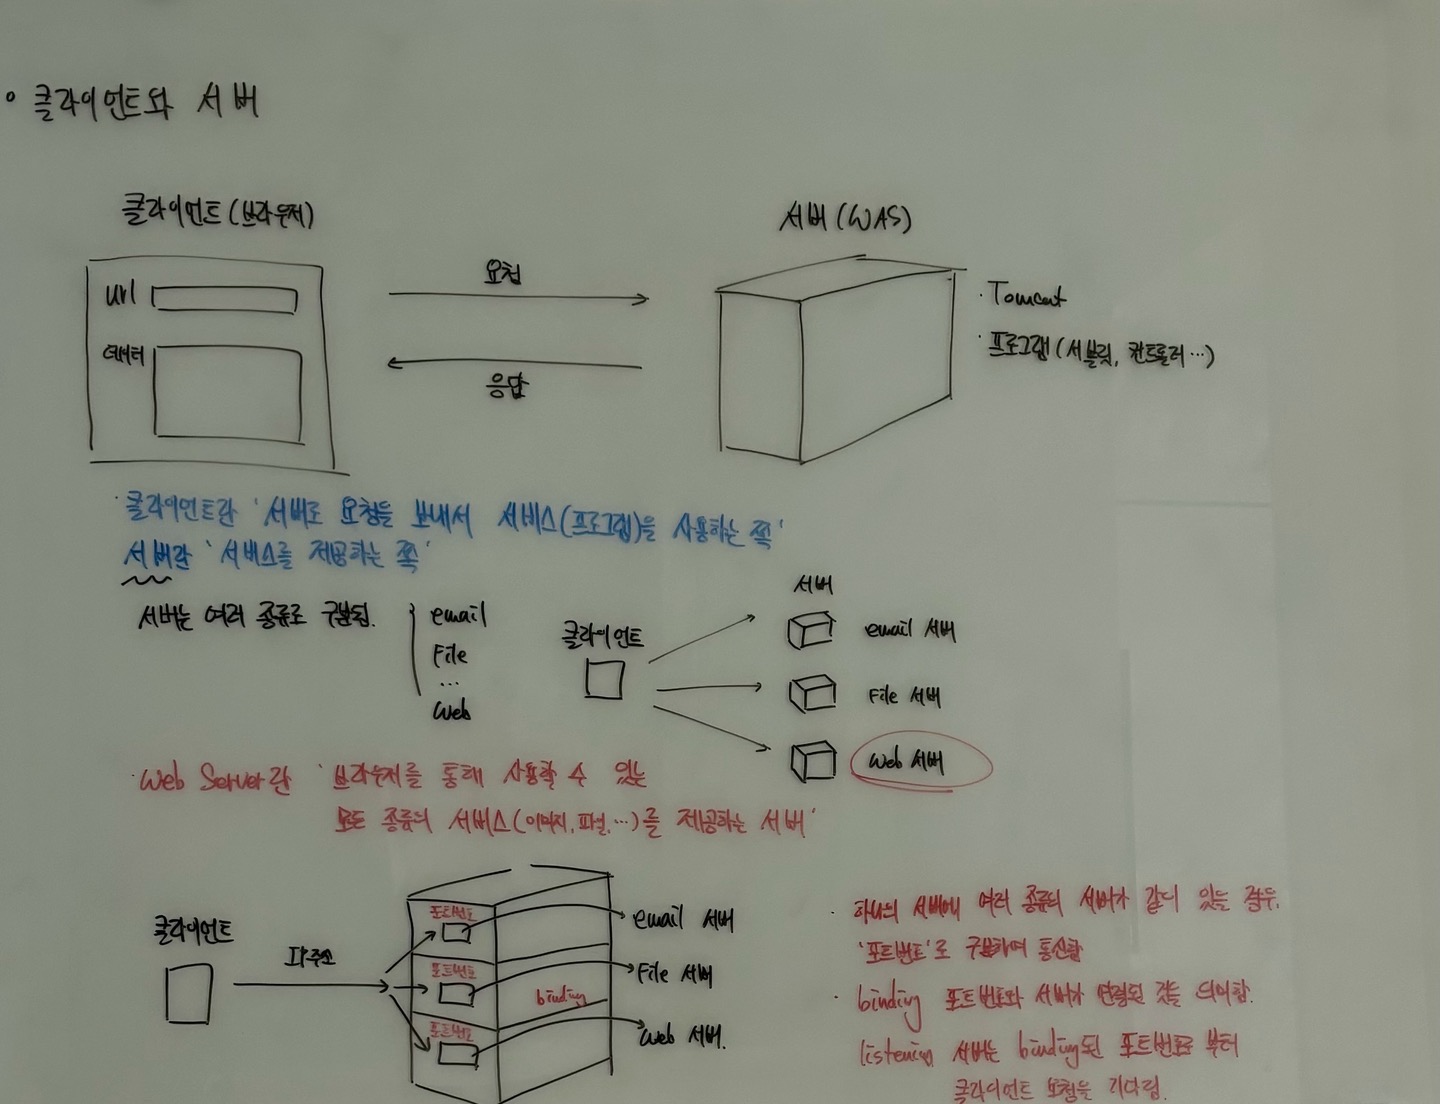 • 클라이언트와 서버
클라이언트(브라우저)
서버(WAS)
url
데이터
요청
응답
· Tomcat
· 프로그램(서블릿, 컨트롤러…)
· 클라이언트란 '서버로 요청을 보내서 서비스(프로그램)을 사용하는 쪽'
서버란 '서비스를 제공하는 쪽'
서버는 여러 종류로 구분됨.
email
File
...
Web
클라이언트
서버
email 서버
File 서버
Web 서버
· Web Server란 '브라우저를 통해 사용할 수 있는
모든 종류의 서비스(이미지, 파일, …)를 제공하는 서버'
클라이언트
IP주소
포트번호
포트번호
포트번호
binding
email 서버
File 서버
Web 서버.
· 하나의 서버에 여러 종류의 서버가 같이 있는 경우,
'포트번호'로 구분하여 통신함
· binding 포트번호와 서버가 연결된 것을 의미함.
listening 서버는 binding된 포트번호로 부터
클라이언트 요청을 기다림.